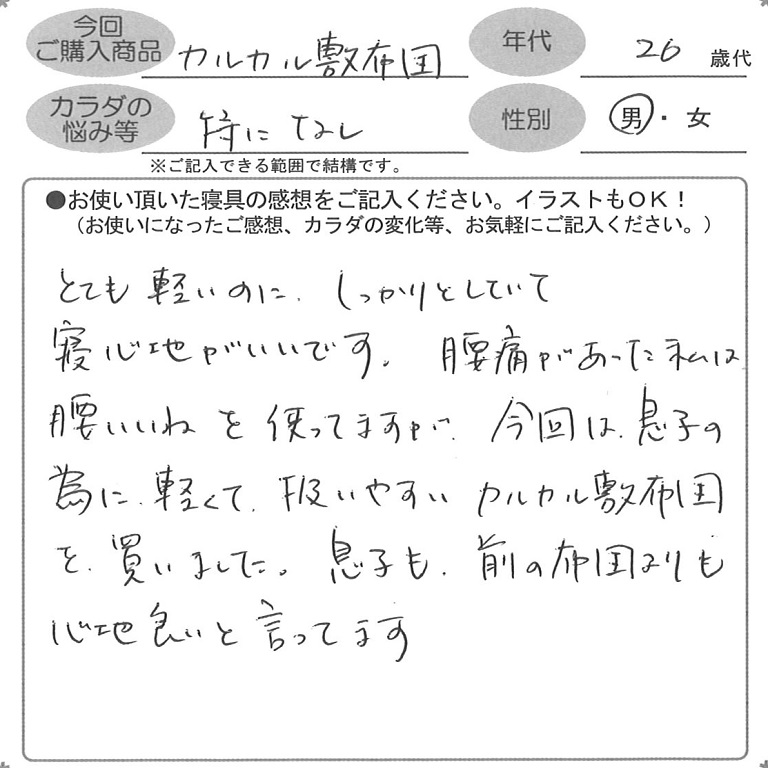 今回
ご購入商品 カルカル敷布団 年代 20 歳代
カラダの
悩み等 特になし 性別 男・女
※ご記入できる範囲で結構です。
●お使い頂いた寝具の感想をご記入ください。イラストもOK！
（お使いになったご感想、カラダの変化等、お気軽にご記入ください。）
とても軽いのに、しっかりとしていて
寝心地がいいです。腰痛があった私は
腰いいねを使ってますが、今回は、息子の
為に、軽くて、扱いやすいカルカル敷布団
を、買いました。息子も、前の布団よりも
心地良いと言ってます